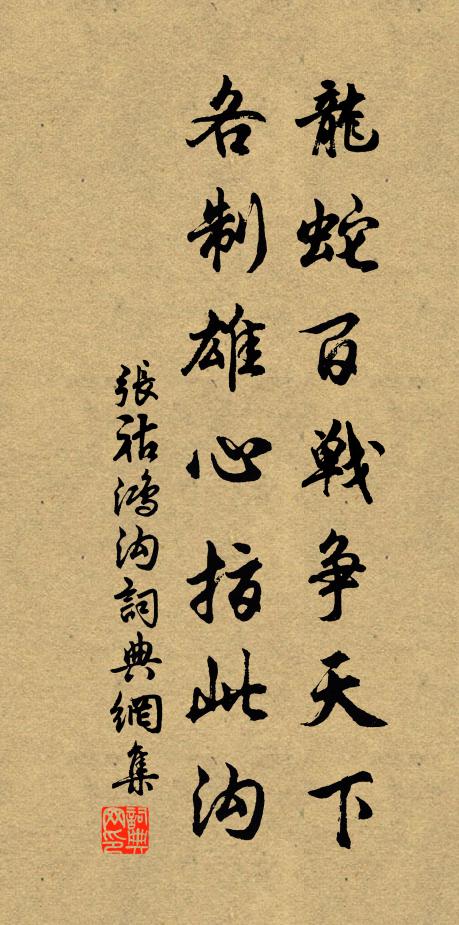 龍蛇百戰争天下
各制雄心指此沟
張祜鴻沟詞典網集
詞典
网印